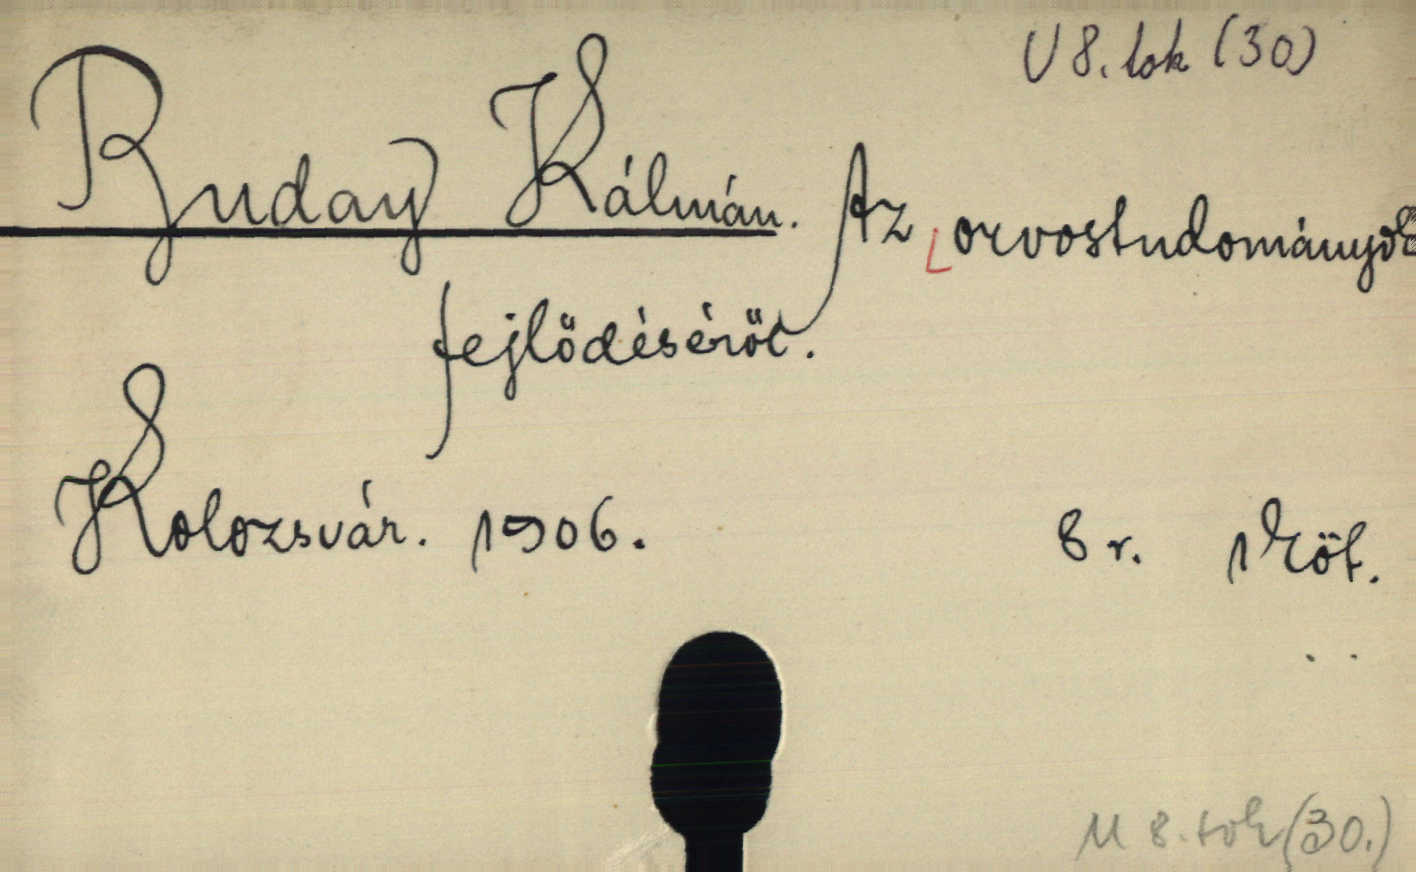 U 8. tok (30)
Buday Kálmán. Az orvostudományok
fejlődéséről.
Kolozsvár. 1906. 8 r. 1 Köt.
U 8. tok (30.)